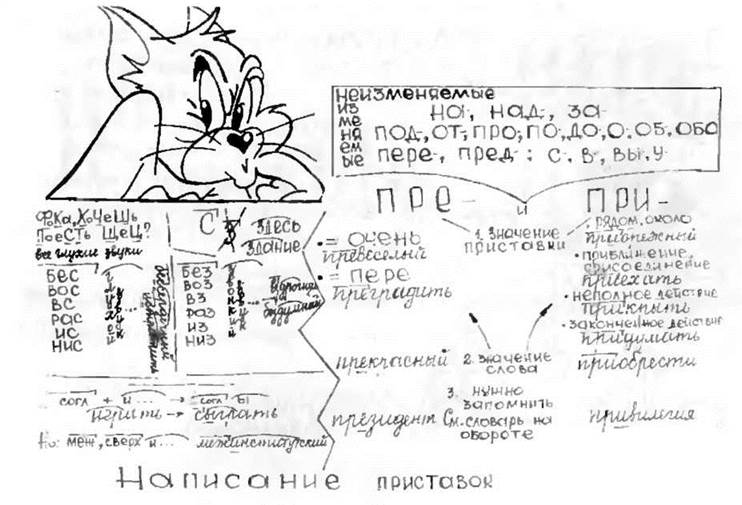 неизменяемые
из
ме
ня
ем
ые
на-, над-, за-
под-, от-, про-, по-, до-, о-, об-, обо-
пере-, пред-; с-, в-, вы-, у-
ПРЕ- и ПРИ-
Фока, ХоЧеШь
ПоеСТь ЩеЦ?
все глухие звуки
С З
здесь
здание
бес
вос
вс
рас
ис
нис
глухой
звук
без
воз
вз
раз
из
низ
звонкий
звук
согл + и ... → согл ы
играть → сыграть
Но: меж, сверх и ... межинститутский
1. значение
приставки
• = очень
превеселый
• = пере
преградить
• рядом, около
прибрежный
• приближение,
присоединение
приехать
• неполное действие
прикрыть
• законченное действие
придумать
прекрасный
2. значение
слова
приобрести
президент
3. нужно
запомнить
См. словарь на
обороте
привилегия
Написание приставок